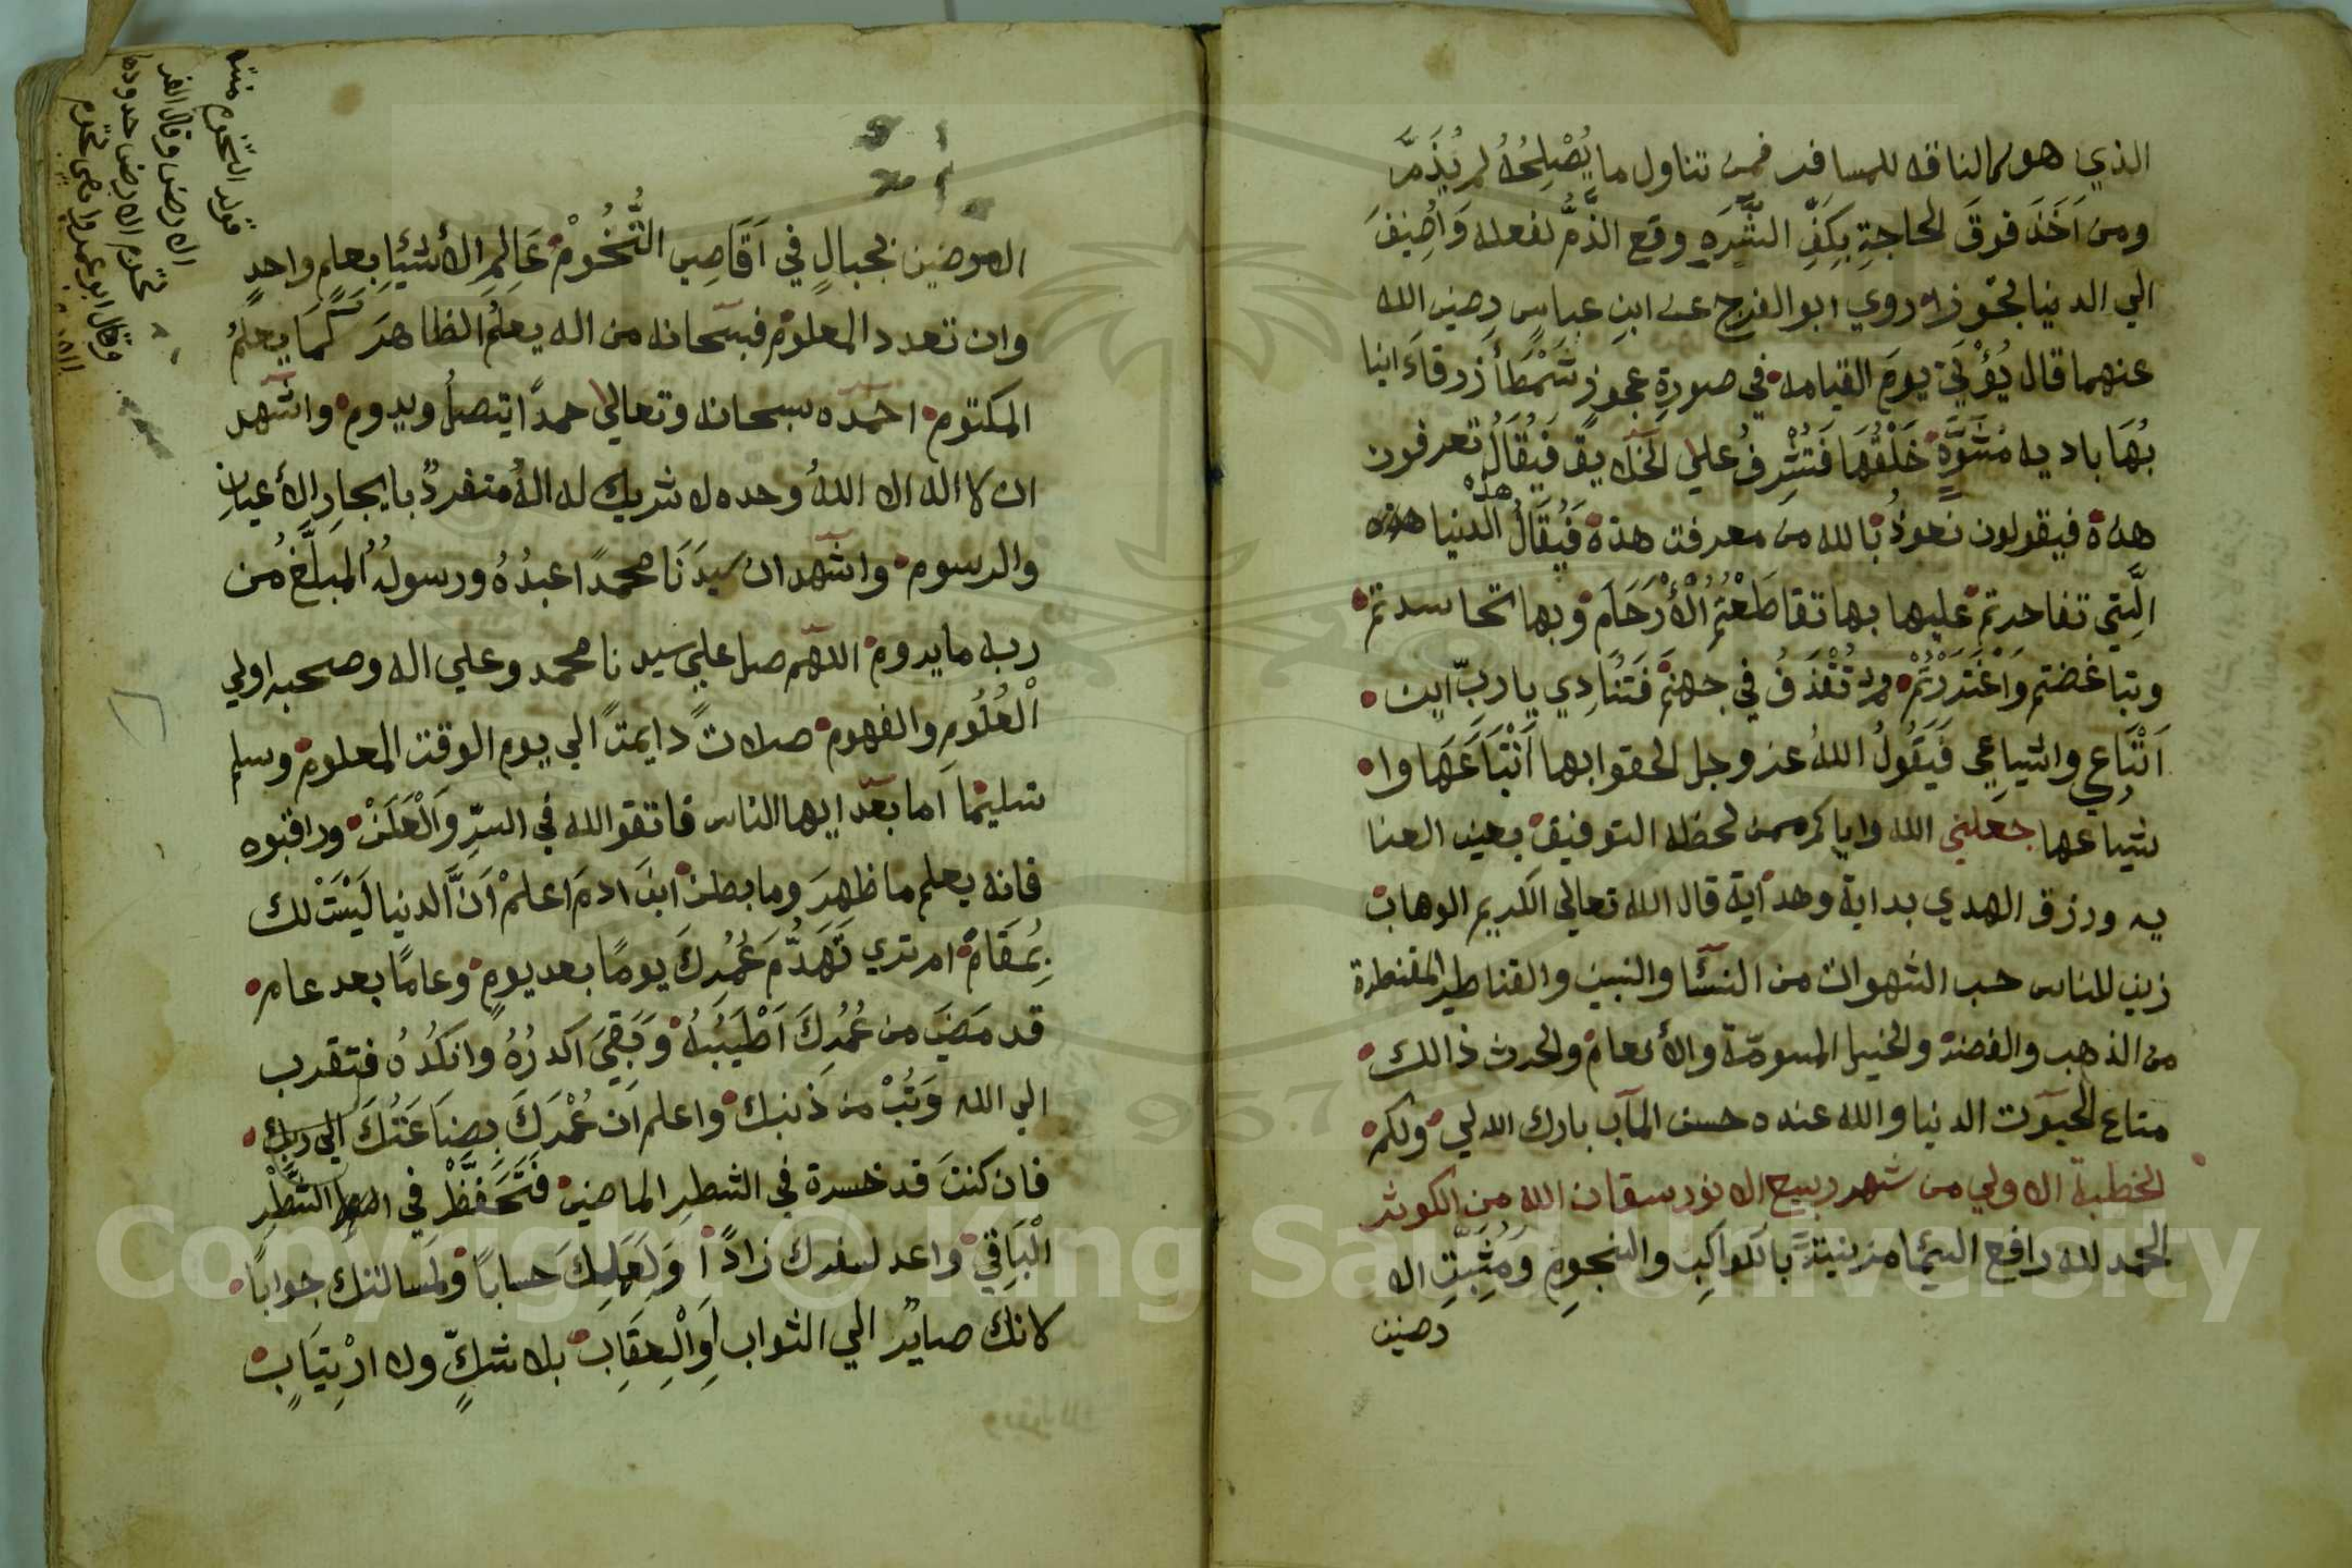 الذي هو كالناقه للمسافر فمن تناول ما يُصْلِحُهُ لم يُذَمَّ
ومن اَخَذَ فوقَ الحاجةِ بِكَفِّ الشَّرَهِ وقع الذَّمُّ لفعله وَاُضِيفَ
الي الدنيا تجوزا روي ابو الفرج عن ابنِ عباسٍ رضي الله
عنهما قال يُؤْتَي يومَ القيامه في صورةِ عجوزٍ شَمْطَأَ زرقاءَ انيا
بُهَا باديه مُشَوَّهٌ خَلْقُهَا فَتُشْرِفُ علي الخلايق فَيُقَالُ تعرفون
هذة فيقولون نعوذُ بالله من معرفت هذة فَيُقَالُ هذه الدنيا
الَّتِي تفاخرتم عليها بها تقاطَعْتُمُ الْأَرْحَامَ وبها تحاسدتم
وتباغضتم وَاغْتَرَرْتُمْ ثم تُقْذَفُ في جهنم فَتُنَادِي يا ربّ اين
اَتْبَاعِي واشياعي فَيَقُولُ اللهُ عز وجل الحقوا بها اَتْبَاعَهَا وا
شياعها جعلني الله واياكم ممن لحظه التوفيق بعين العنا
يه ورزق الهدي بداية وهداية قال الله تعالي الكريم الوهاب
زين للناس حب الشهوات من النسآ والنبين والقناطير المقنطرة
من الذهب والفضة والخيل المسومة والأنعام والحرث ذالك
متاع الحيوت الدنيا والله عنده حسن المآب بارك الله لي ولكم
الخطبة الاولي من شهر ربيع الانور سقان الله من الكوثر
الحمد لله رافع السمآ مزينيةً بالكواكِبِ والنجومِ وَمُثَبِّتِ الا
رضين
الارضين بجبالٍ في اَقَاصِي التُّخُومْ عَالِمِ الأشيَا بِعلمٍ واحدٍ
وان تعدد المعلوم فسبحانه من اله يعلَمُ الظاهرَ كَمَا يعلمُ
المكتوم احمده سبحانه وتعالي حمدًا يتصلُ ويدوم واشهد
ان لا اله الا اللهُ وحده لا شريك له الهٌ متفردٌ بايجادِ الأعيانِ
والرسوم واشهد ان سيدَنَا محمدًا عبدُهُ ورسولُهُ المبلَّغُ من
ربه ما يدوم اللهم صل علي سيدنا محمد وعلي اله وصحبه اولي
الْعُلُومِ والفهوم صلاتً دايمتً الي يوم الوقت المعلوم وسلم
تسليمًا اما بعد ايها الناس فاتقوا الله في السرِّ وَالْعَلَنْ وراقبوه
فانه يعلم ما ظهرَ وما بطن ابنَ ادمَ اعلمْ اَنَّ الدنيا لَيْسَتْ لك
بِمُقَام امر تري تَهَدُّمَ عُمُرِكَ يومًا بعد يومٍ وعامًا بعد عام
قد مَضَي من عُمُرِكَ اَطْيَبُهُ وَبَقِيَ اكدرُهُ وانكدُهُ فتقرب
الي الله وَتُبْ من ذنبك واعلم اَن عُمْرَكَ بِضَاعَتُكَ الي ربك
فان كنتَ قد خسرة في الشطرِ الماضي فَتَحَفَّظْ في الشَّطْرِ
الْبَاقِي واعد لسفرك زادًا وَلِعَمَلِكَ حسابًا ولمسالتك جوابًا
لانك صايرٌ الي الثواب اَوِالْعِقَابِ بلا شكٍّ ولا ارْتِيَابٍ
قوله التخوم منتها
الارض وقال الفر
تخوم الارض حدودها
وقال ابو عمرو هي تخوم
Copyright © King Saud University
957